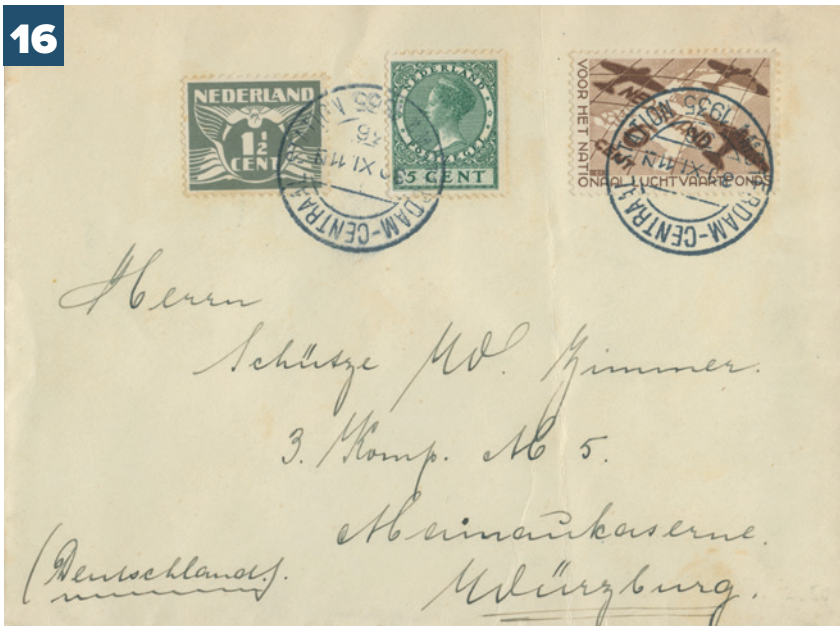 16
NEDERLAND
1½
CENT
NEDERLAND
5 CENT
VOOR HET NATI
ONAAL LUCHTVAARTFONDS
DAM-CENTRAAL STATION
XI.11N
1935
DAM-CENTRAAL STATION
XI.11N
1935
Herrn
Schütze W. Zimmer.
3. Komp. M 5.
Mainaukaserne.
(Deutschland.).
Würzburg.